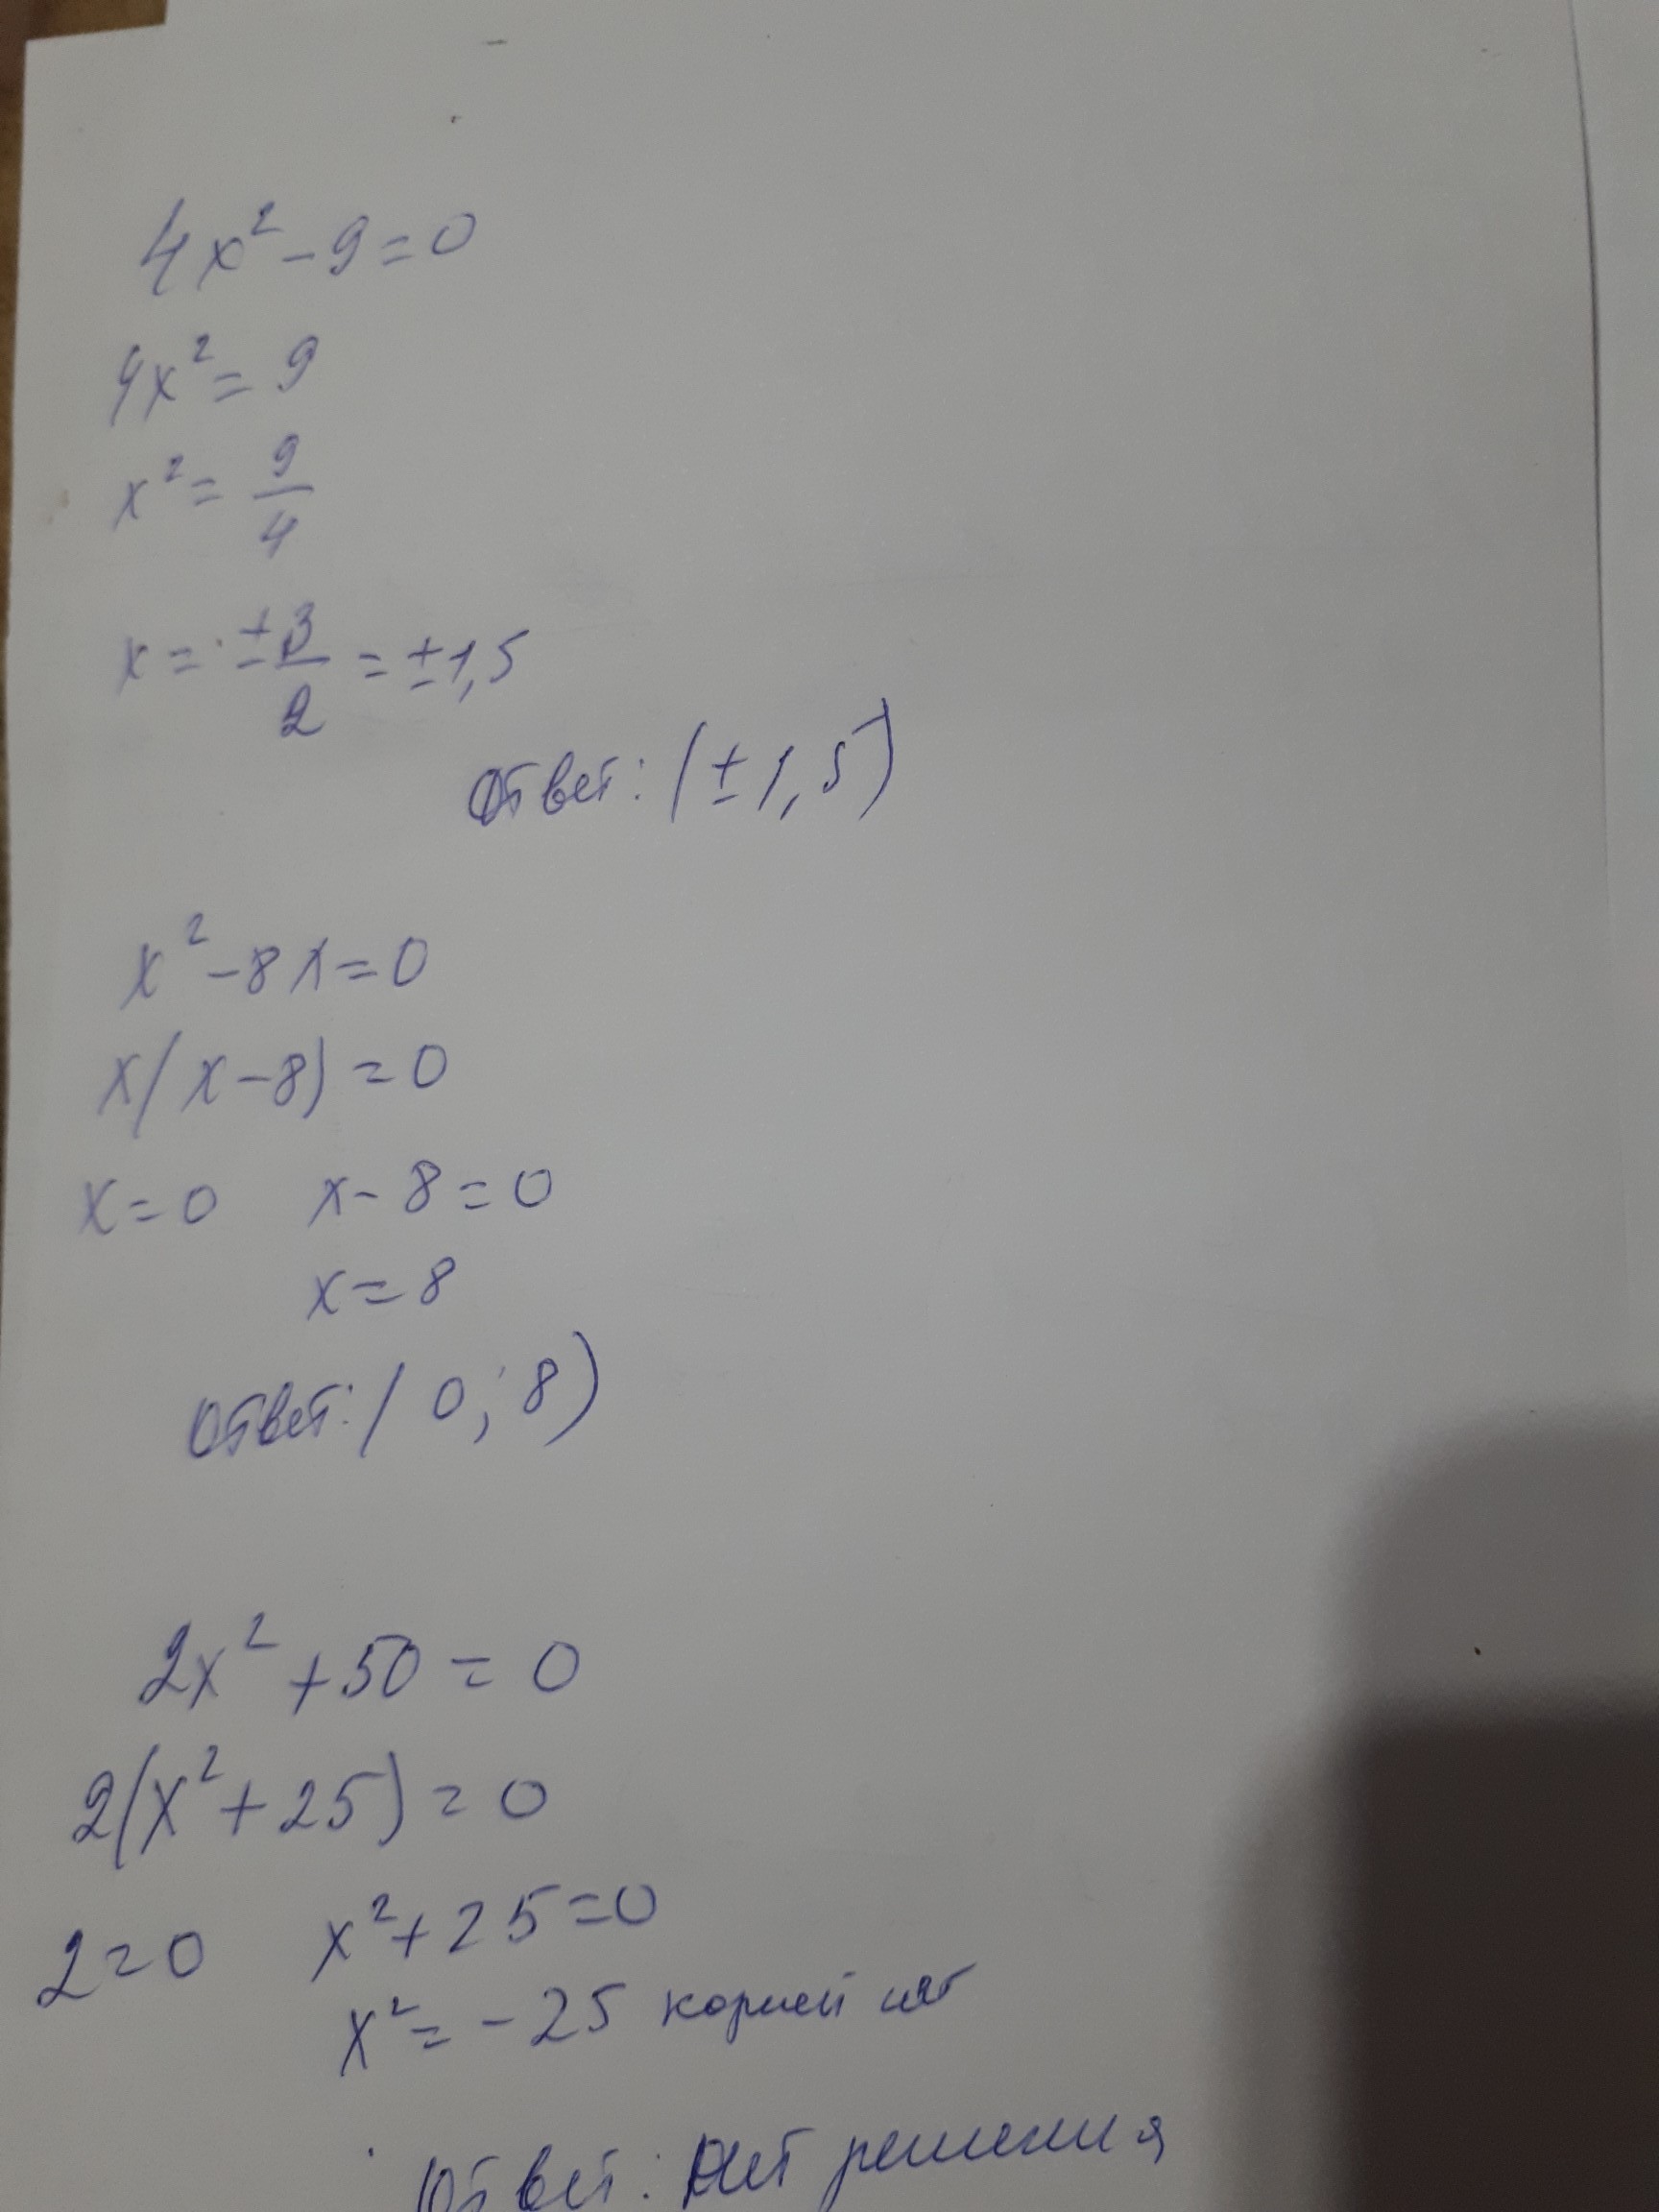 4x² - 9 = 0
4x² = 9
x² = 9/4
x = ±3/2 = ±1,5
Ответ: (±1,5)
x² - 8x = 0
x(x - 8) = 0
x = 0 x - 8 = 0
x = 8
Ответ: (0; 8)
2x² + 50 = 0
2(x² + 25) = 0
2 = 0 x² + 25 = 0
x² = -25 корней нет
Ответ: Нет решения